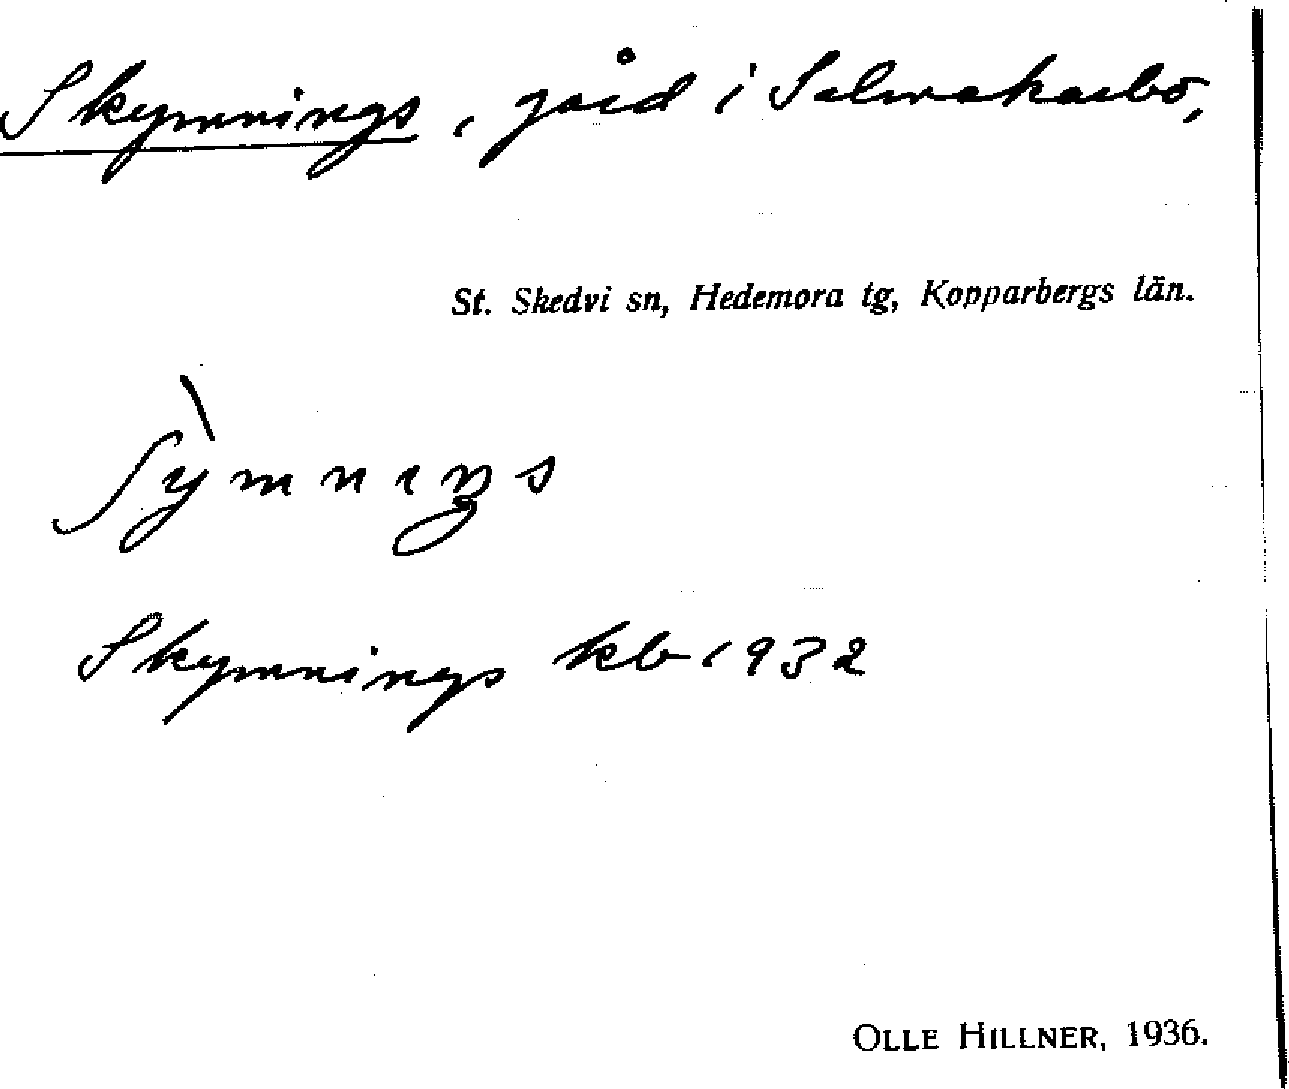 Skymnings, gård i Solvarbo,
St. Skedvi sn, Hedemora tg, Kopparbergs län.
ʃỳmnıŋs
Skymnings kb 1932
OLLE HILLNER, 1936.